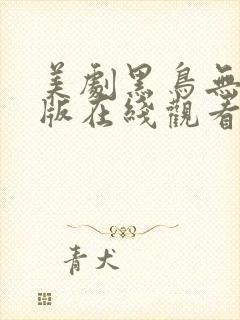 美劇黑鳥無
版在綫觀看
青犬